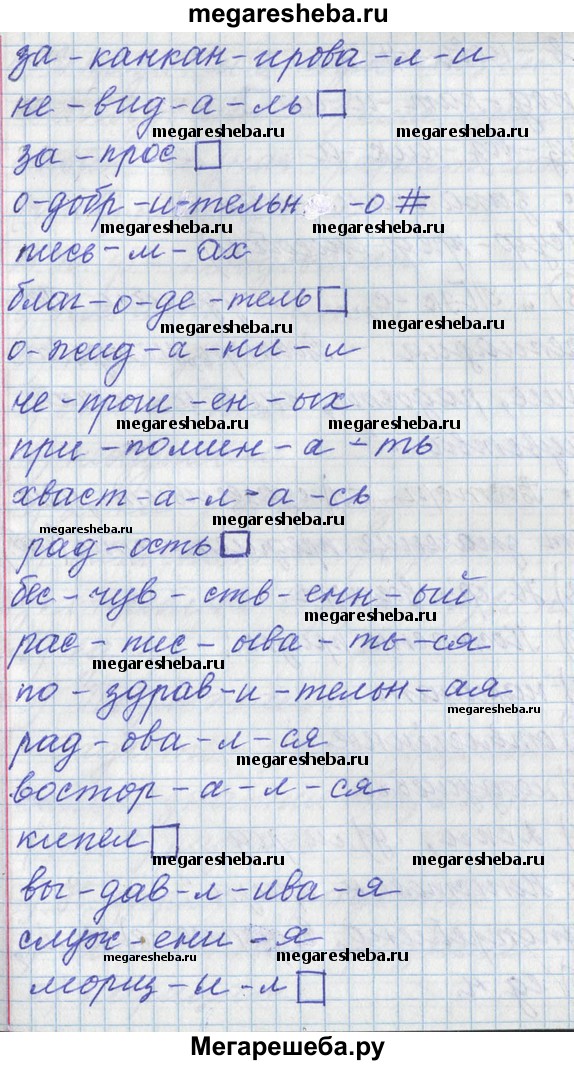 megaresheba.ru
за - канкан - ирова - л - и
не - вид - а - ль □
megaresheba.ru megaresheba.ru
за - прос □
о - добр - и - тельн - о #
megaresheba.ru megaresheba.ru
пись - м - ах
благ - о - де - тель □
megaresheba.ru megaresheba.ru
о - жид - а - ни - и
не - прош - ен - ых
megaresheba.ru megaresheba.ru
при - помин - а - ть
хваст - а - л - а - сь
megaresheba.ru megaresheba.ru
рад - ость □
бес - чув - ств - енн - ый
megaresheba.ru
рас - пис - ыва - ть - ся
megaresheba.ru
по - здрав - и - тельн - ая
megaresheba.ru
рад - ова - л - ся
megaresheba.ru
востор - а - л - ся
кипел □
megaresheba.ru megaresheba.ru
вы - дав - л - ива - я
служ - ени - я
megaresheba.ru
морщ - и - л □
megaresheba.ru
Мегарешеба.ру